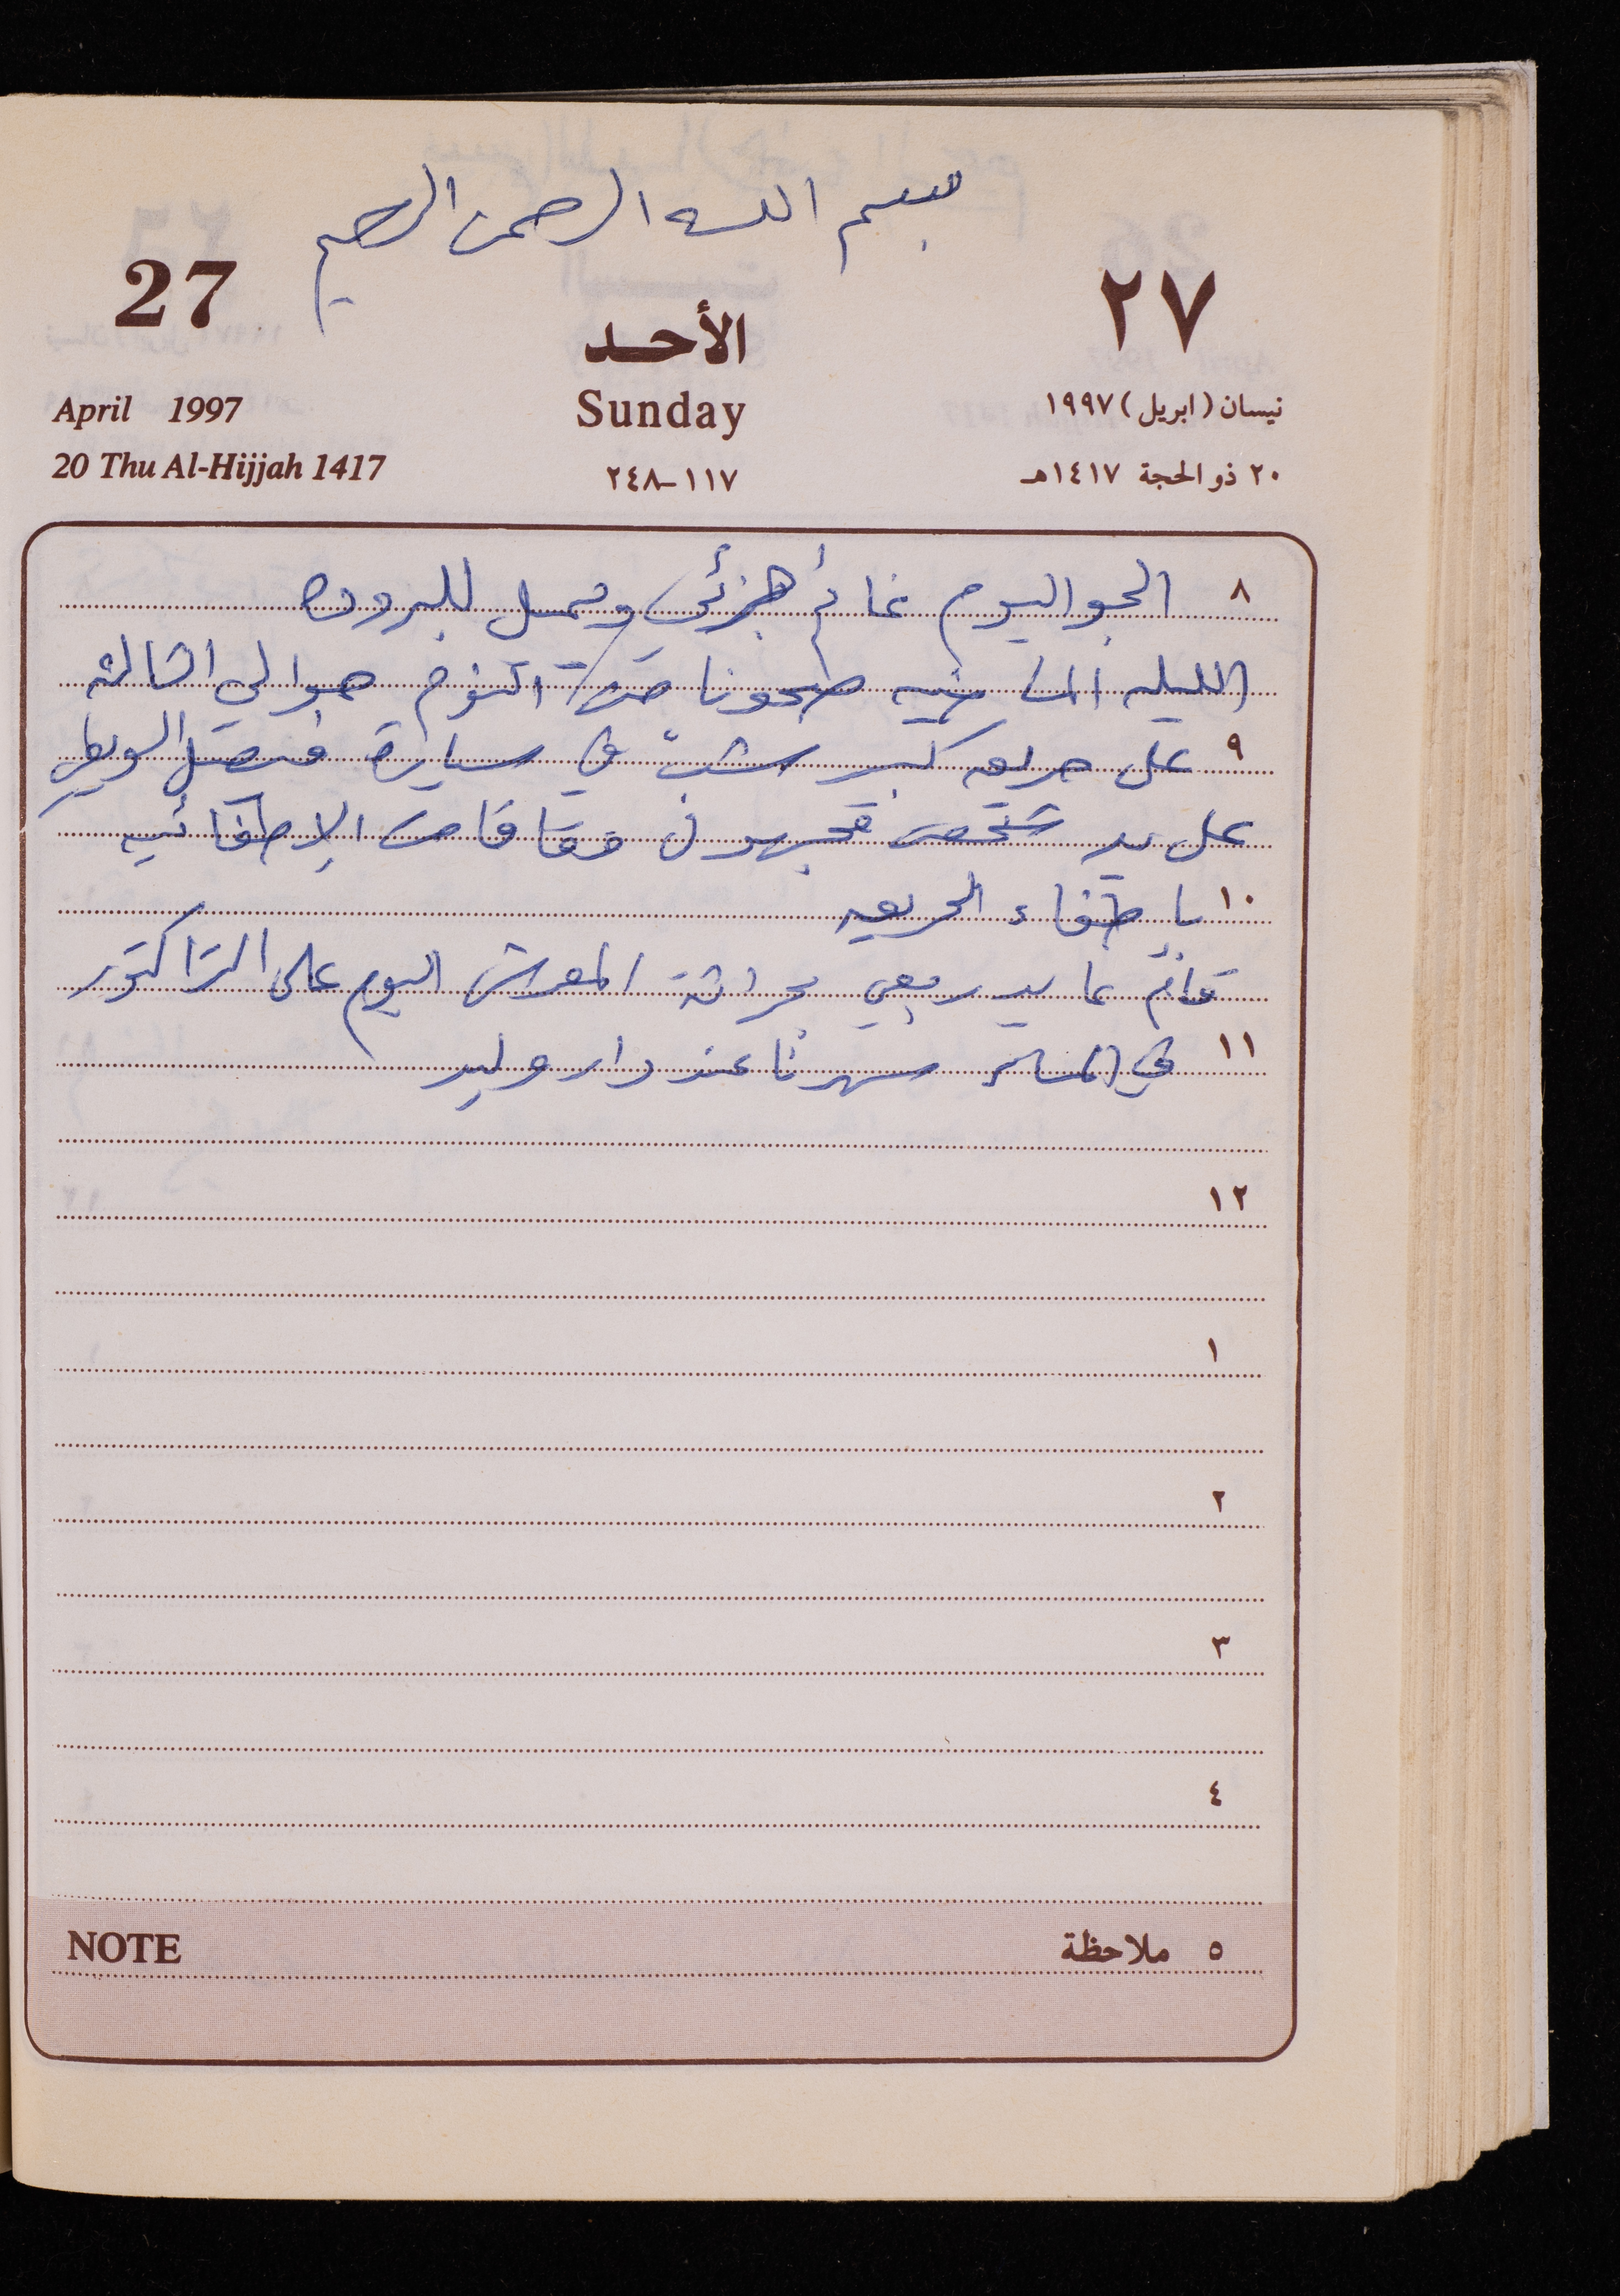 بسم الله الرحمن الرحيم
27
٢٧
الأحد
April 1997
Sunday
نيسان (ابريل) ١٩٩٧
20 Thu Al-Hijjah 1417
١١٧-٢٤٨
٢٠ ذو الحجة ١٤١٧هـ
٨ الجو اليوم غائم جزئي ويميل للبروده
الليله الماضيه صحونا من النوم حوالي الثالثه
٩ على حريق كبير شبّ في سيارة فيصل
على يد شخص مجهول وقامت الإطفائيه
١٠ بإطفاء الحريق
قام عايد ربعي بحراثة المعرش اليوم على التراكتور
١١ في المساء سهرنا عند دار وليد
١٢
١
٢
٣
٤
NOTE
٥ ملاحظة